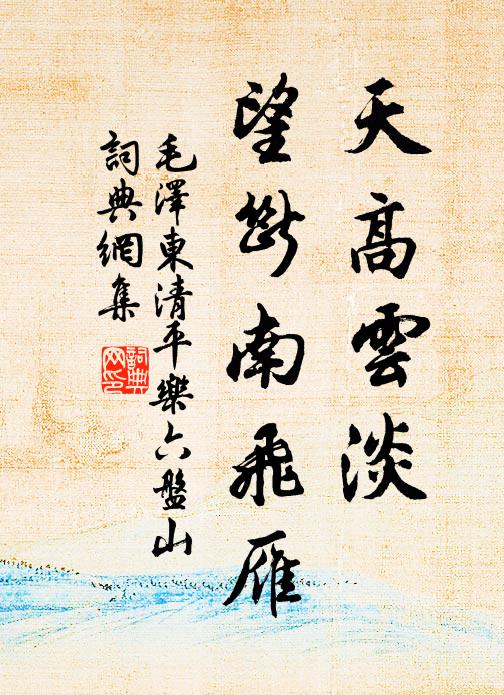 天高雲淡
望斷南飛雁
毛澤東清平樂六盤山
詞典網集
詞典网印